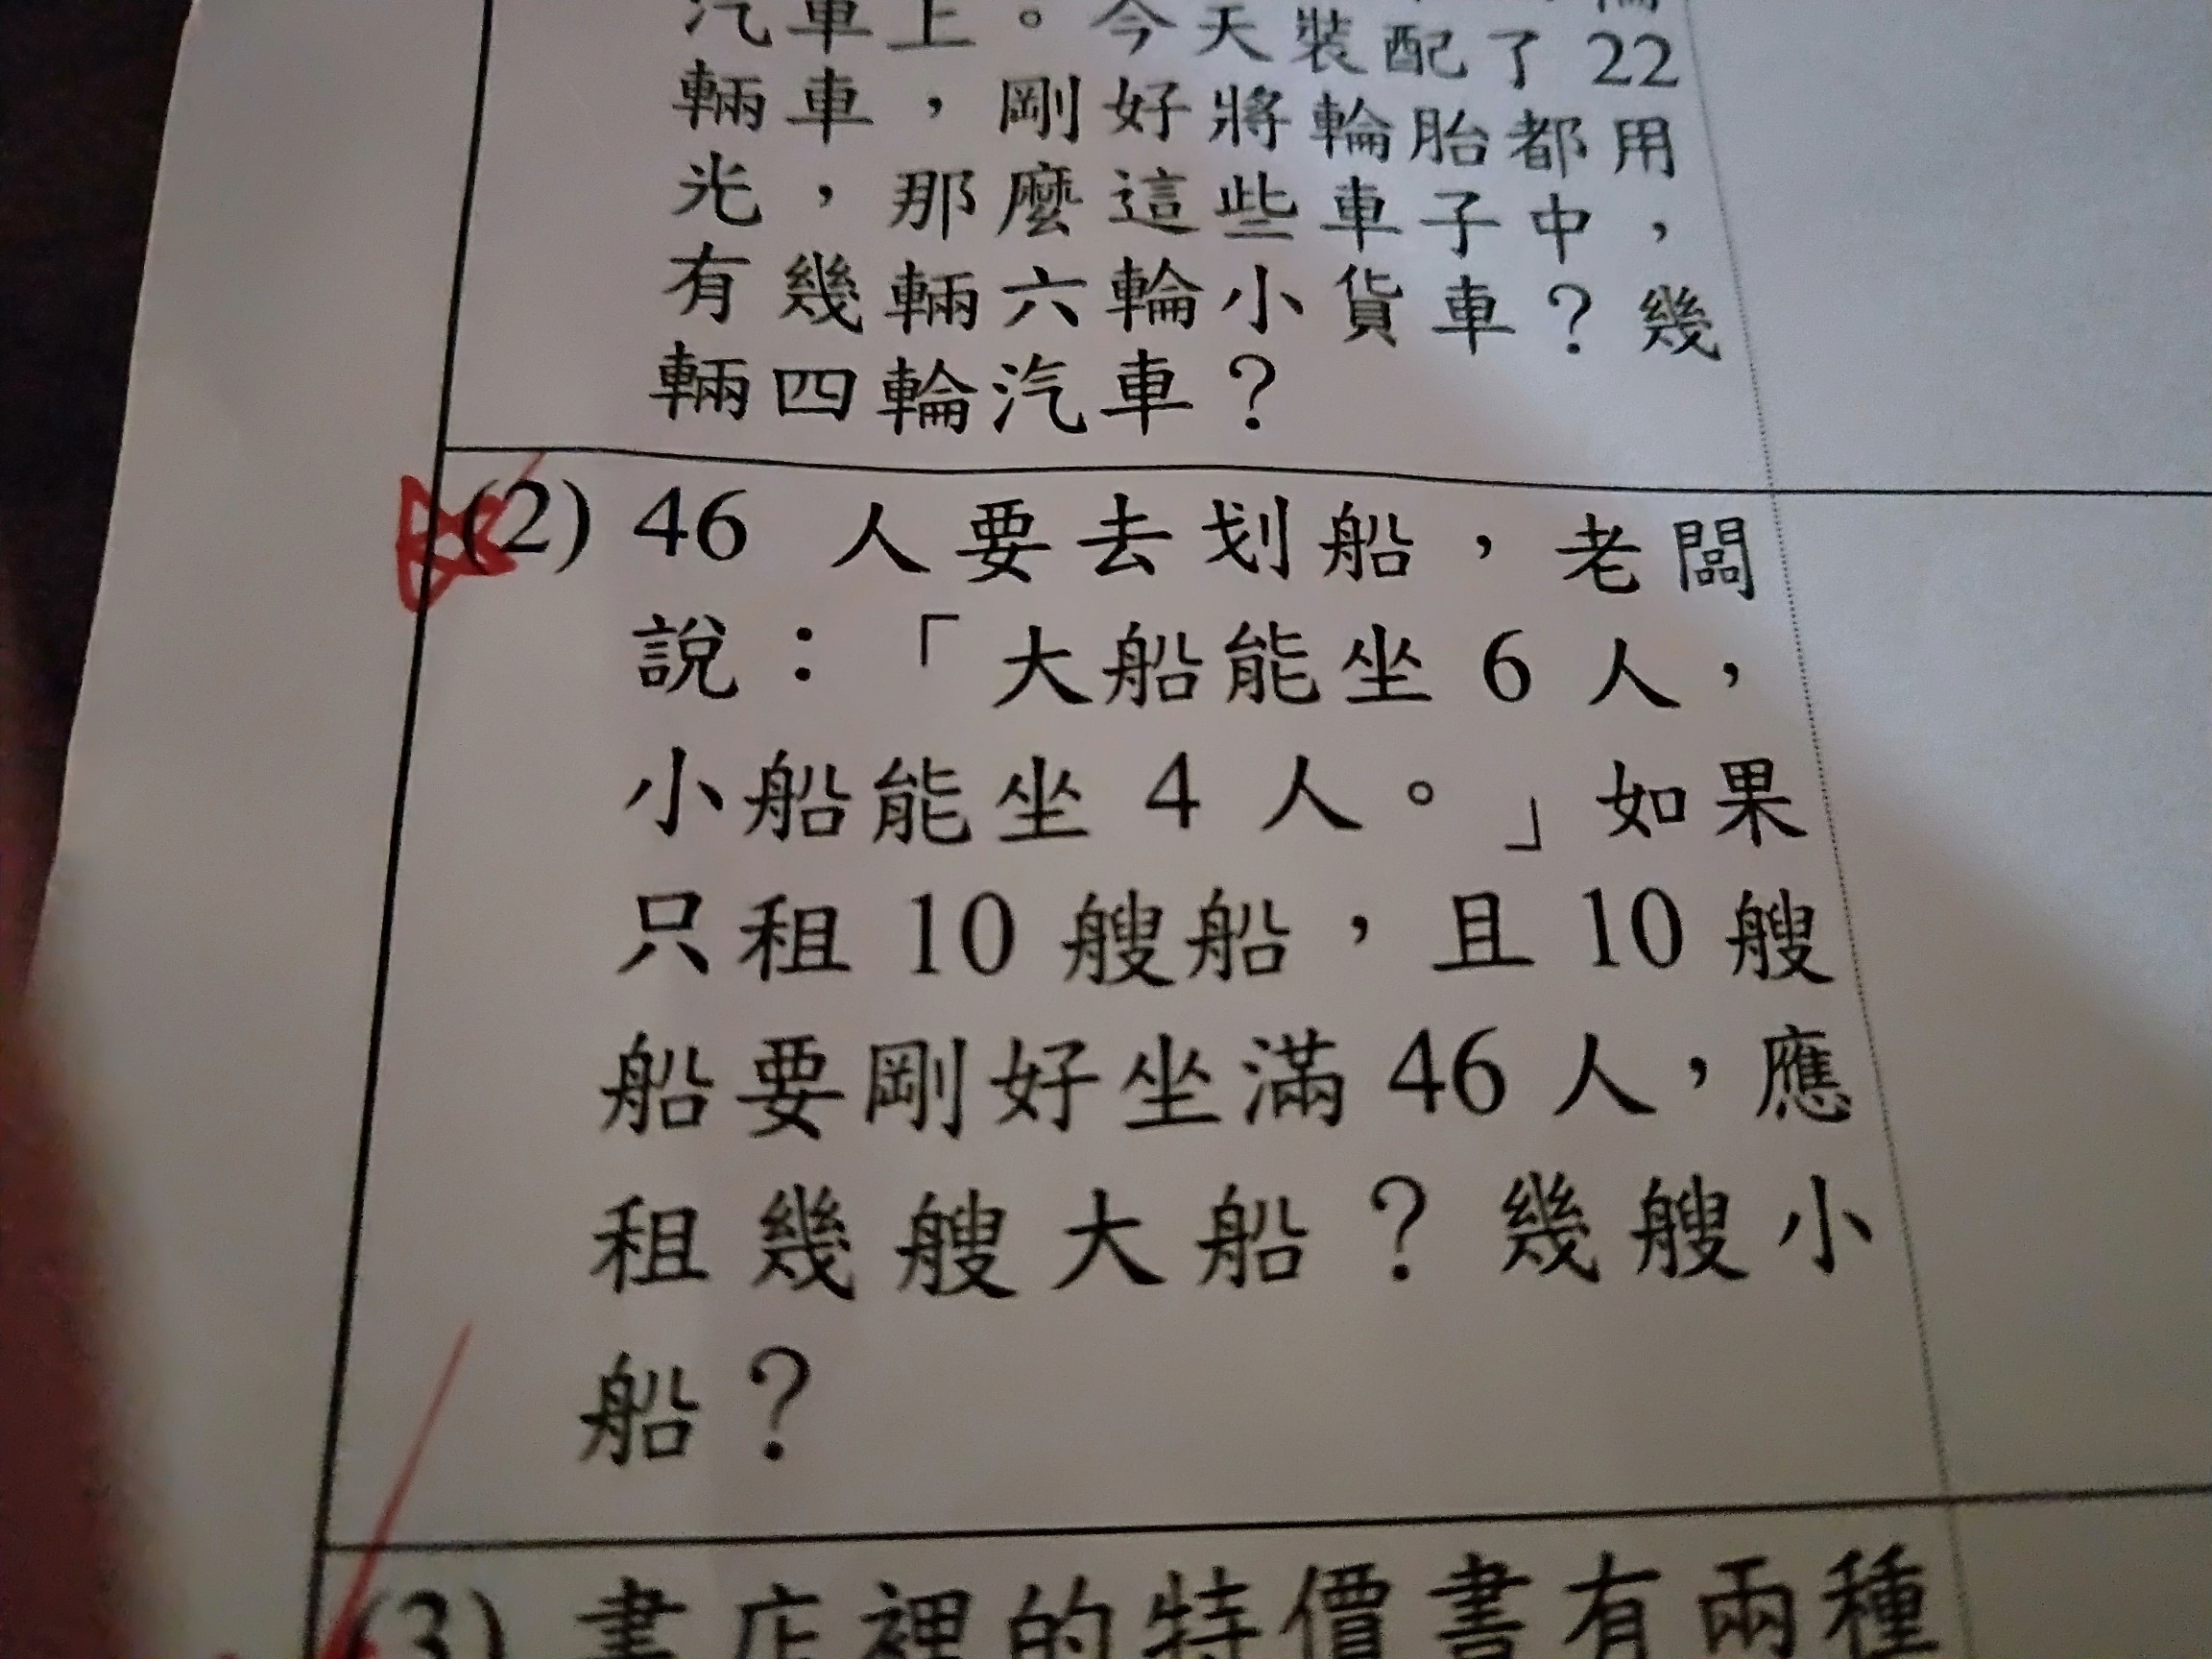 汽車上。今天裝配了 22
輛車，剛好將輪胎都用
光，那麼這些車子中，
有幾輛六輪小貨車？幾
輛四輪汽車？
(2) 46 人要去划船，老闆
說：「大船能坐 6 人，
小船能坐 4 人。」如果
只租 10 艘船，且 10 艘
船要剛好坐滿 46 人，應
租幾艘大船？幾艘小
船？
(3) 書店裡的特價書有兩種